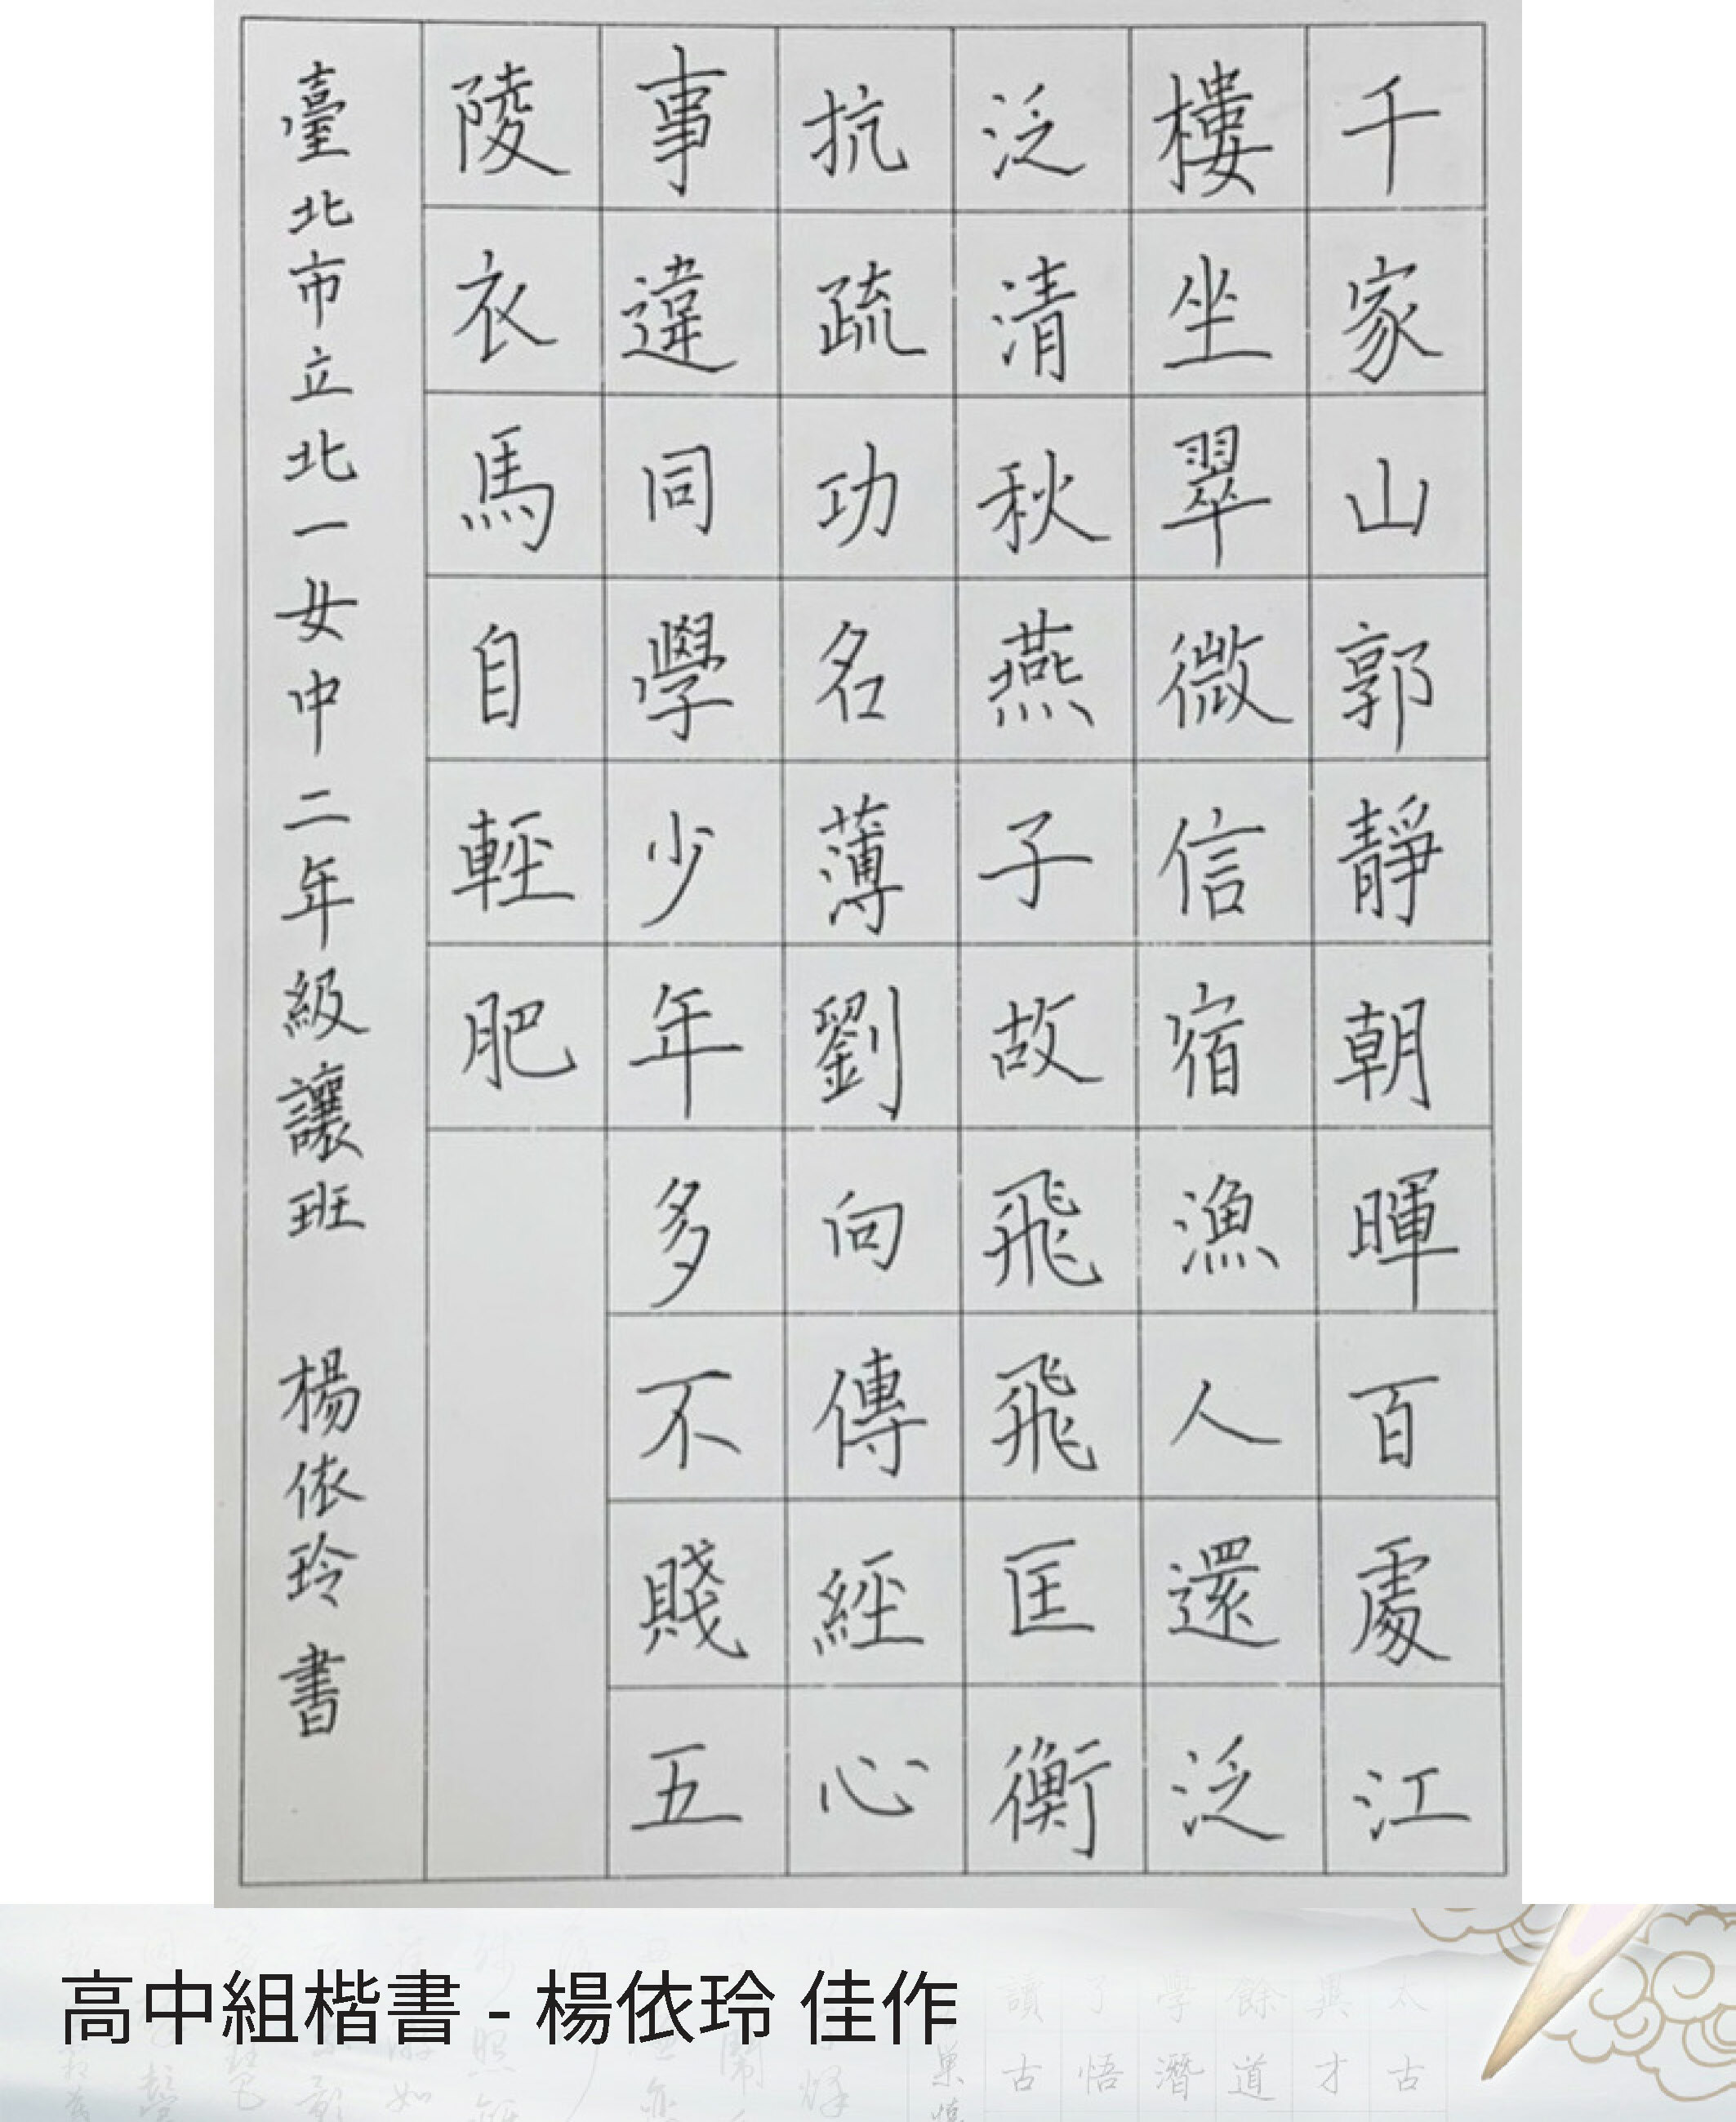 千家山郭靜朝暉百處江
樓坐翠微信宿漁人還泛
泛清秋燕子故飛飛匡衡
抗疏功名薄劉向傳經心
事違同學少年多不賤五
陵衣馬自輕肥
臺北市立北一女中二年級讓班 楊依玲書
高中組楷書 - 楊依玲 佳作